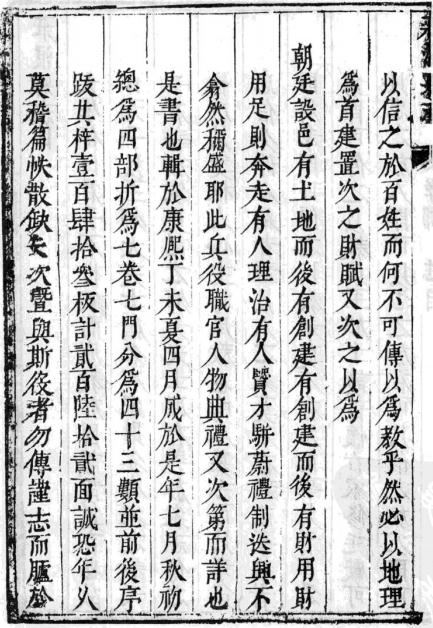 以信之於百姓而何不可傳以爲教乎然必以地理
爲首建置次之財賦又次之以爲
朝廷設邑有土地而後有創建有創建而後有財用財
用足則奔走有人理治有人賢才駢蔚禮制迭興不
翕然稱盛耶此兵役職官人物典禮又次第而詳也
是書也輯於康熈丁未夏四月成於是年七月秋初
總爲四部折爲七卷七門分爲四十三類並前後序
跋共梓壹百肆拾叄板計貳百陸拾貳面誠恐年久
莫稽篇帙散缺失次暨與斯役者勿傳謹志而臚於